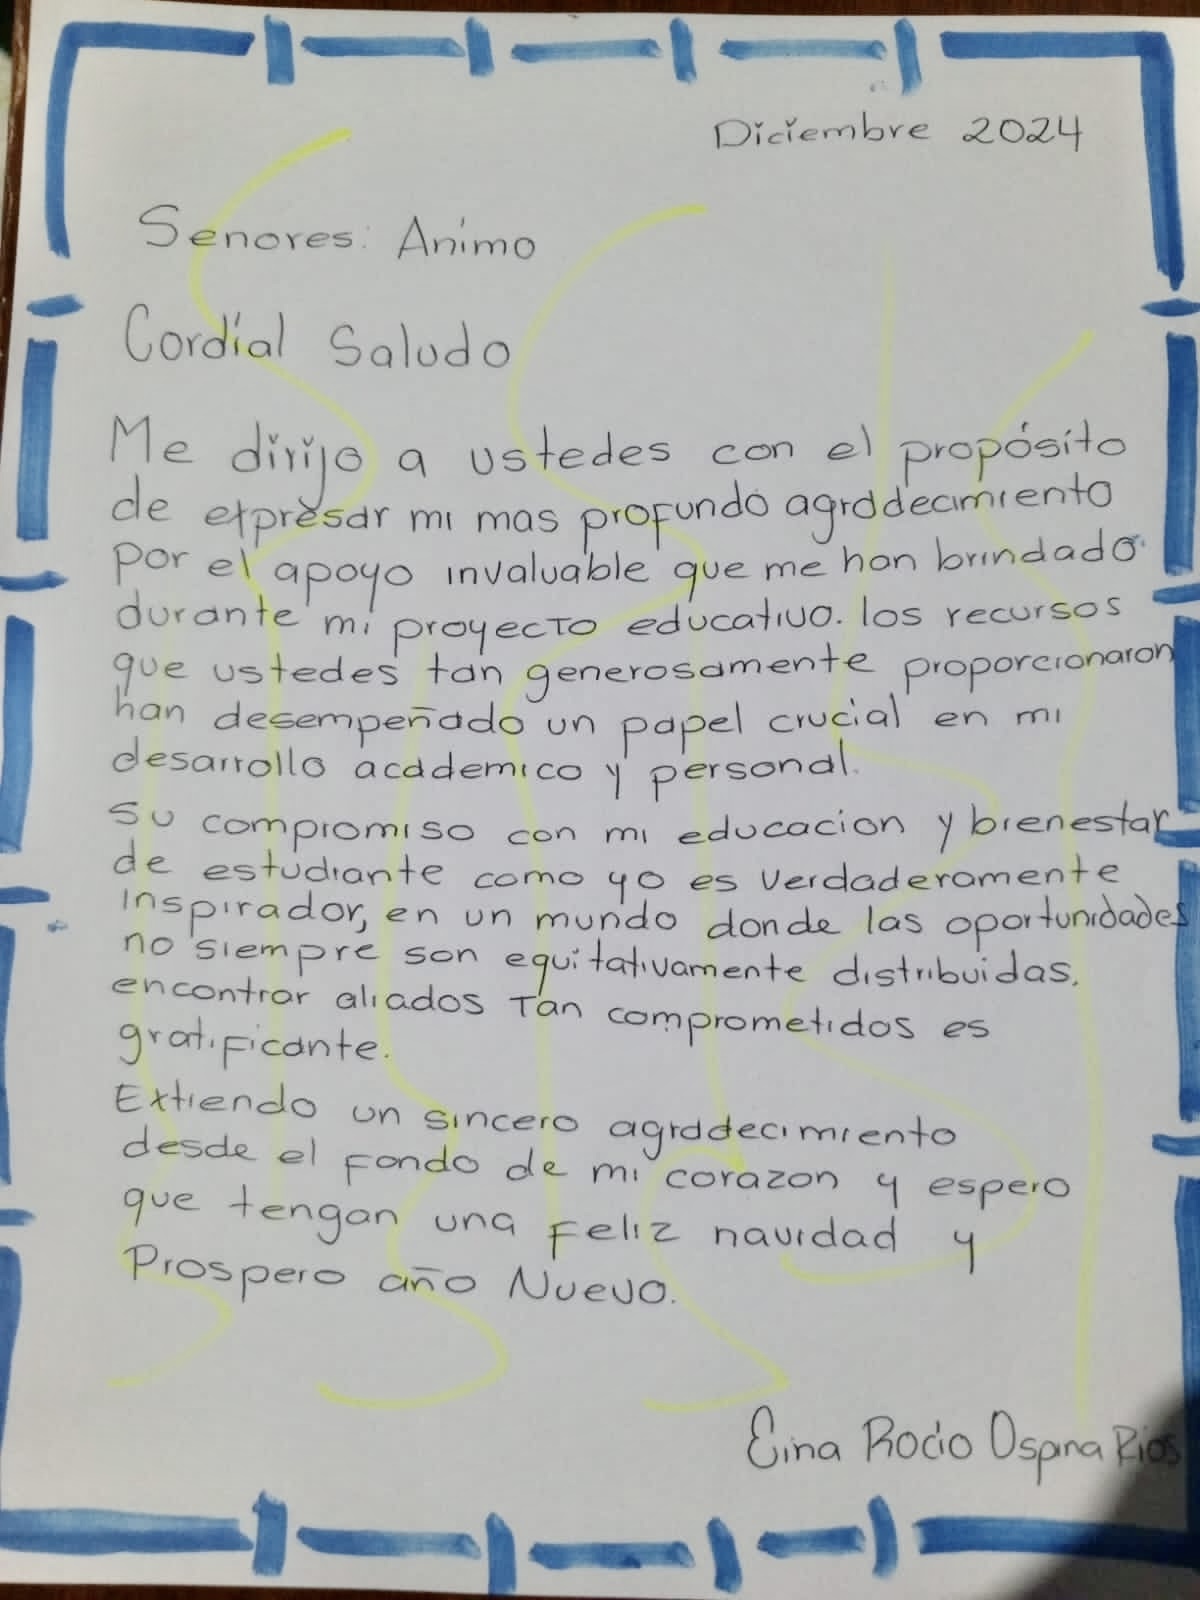 Diciembre 2024
Senores: Animo
Cordial Saludo
Me dirijo a ustedes con el propósito
de expresar mi mas profundo agradecimiento
por el apoyo invaluable que me han brindado
durante mi proyecto educativo. los recursos
que ustedes tan generosamente proporcionaron
han desempeñado un papel crucial en mi
desarrollo academico y personal.
Su compromiso con mi educacion y bienestar
de estudiante como yo es verdaderamente
inspirador, en un mundo donde las oportunidades
no siempre son equitativamente distribuidas.
encontrar aliados tan comprometidos es
gratificante.
Extiendo un sincero agradecimiento
desde el fondo de mi corazon y espero
que tengan una Feliz navidad y
Prospero año Nuevo.
Eina Rocio Ospina Rios